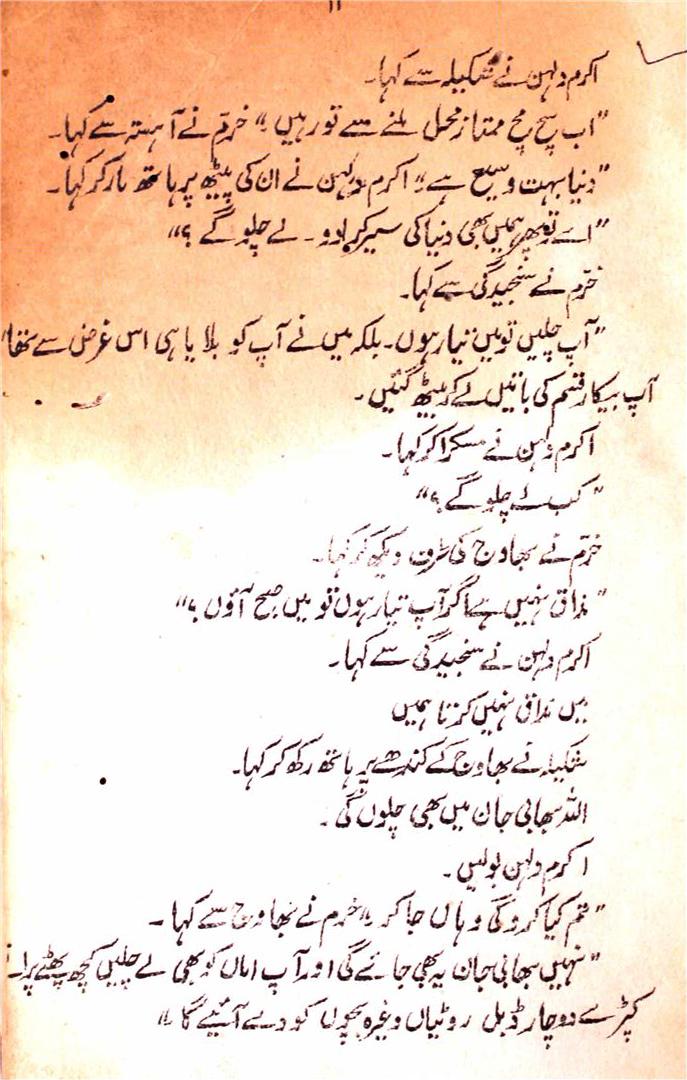 ۱۱
اکرم دلہن نے شکیلہ سے کہا۔
"اب سچ مچ ممتاز محل ملنے سے تو رہیں"۔ خرّم نے آہستہ سے کہا۔
"دنیا بہت وسیع ہے"۔ اکرم دلہن نے ان کی پیٹھ پر ہاتھ مار کر کہا۔
"اے تو پھر ہمیں بھی دنیا کی سیر کرا دو۔ لے چلو گے؟"
خرّم نے سنجیدگی سے کہا۔
"آپ چلیں تو میں تیار ہوں۔ بلکہ میں نے آپ کو بلایا ہی اس غرض سے تھا
آپ بیکار قسم کی باتیں لے کر بیٹھ گئیں۔
اکرم دلہن نے مسکرا کر کہا۔
"کب لے چلو گے؟"
خرّم نے بھاوج کی طرف دیکھ کر کہا۔
"مذاق نہیں ہے اگر آپ تیار ہوں تو میں صبح آؤں؟"
اکرم دلہن نے سنجیدگی سے کہا۔
میں مذاق نہیں کرتا ہمیں
شکیلہ نے بھاوج کے کندھے پر ہاتھ رکھ کر کہا۔
اللہ بھابی جان میں بھی چلوں گی۔
اکرم دلہن بولیں۔
"تم کیا کرو گی وہاں جا کر"۔ خرم نے بھاوج سے کہا۔
"نہیں بھابی جان یہ بھی جائے گی اور آپ اماں کو بھی لے چلیں کچھ پھٹے پرانے
کپڑے دو چار ڈبل روٹیاں وغیرہ بچوں کو دے آئیے گا۔"